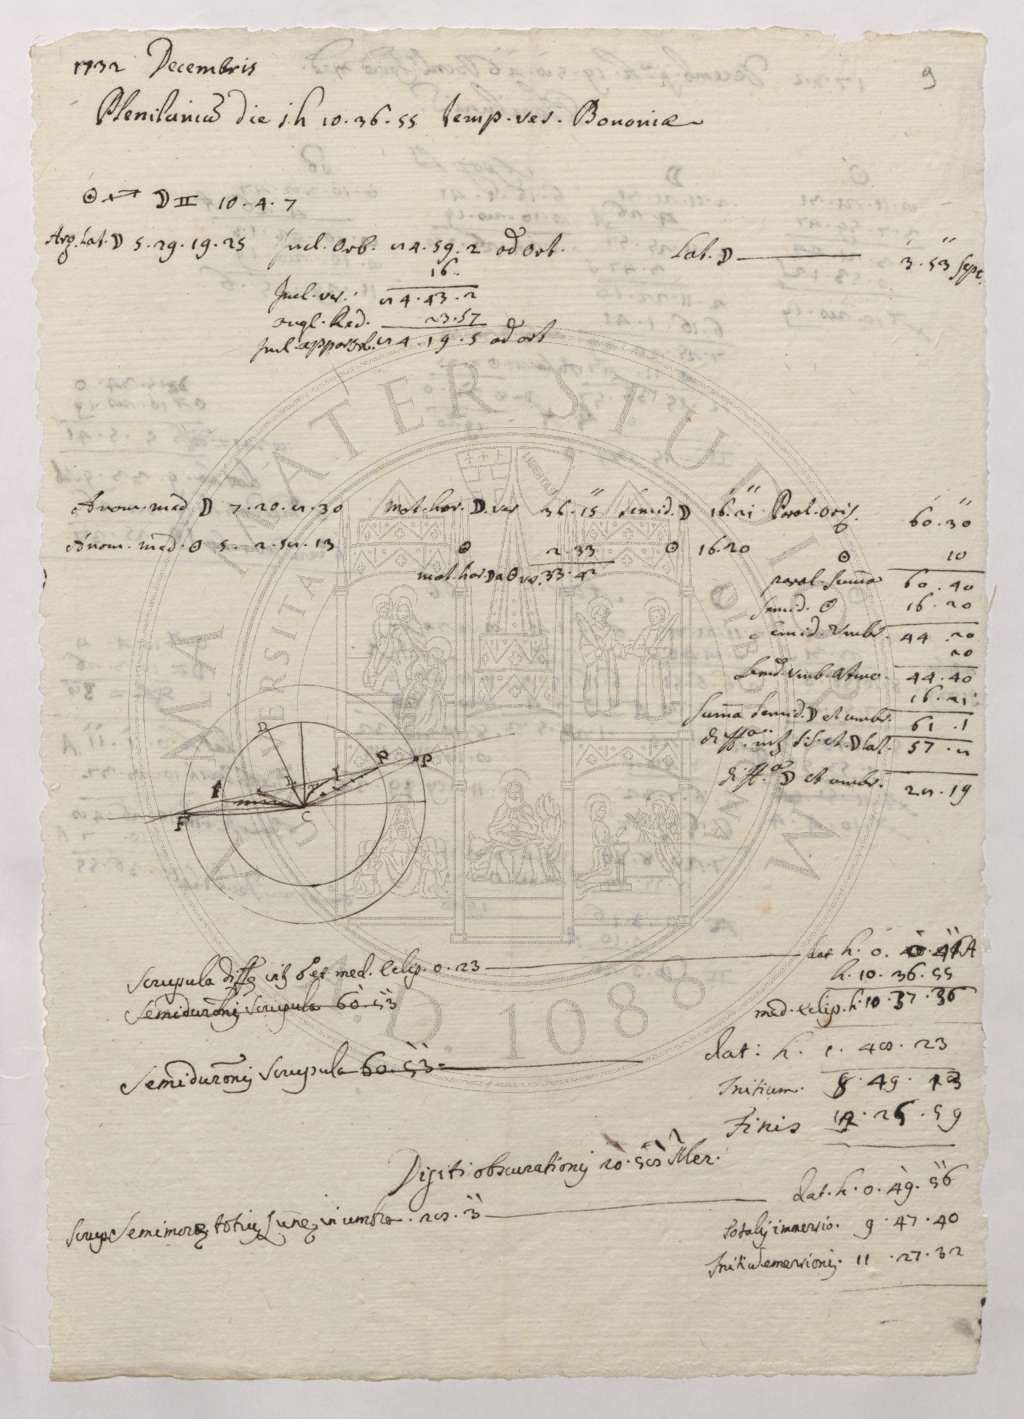 9
1732 Decembris
Plenilunium die 1. h 10. 36. 55 temp. ver. Bononiæ
☉ ♐ ☽ ♊ 10. 4. 7
Arg. Lat. ☽ 5. 29. 19. 25 Incl. Orb. 4. 59. 2 ad ort. Lat. ☽ 3. 53 sept.
16.
Incl. ver. 4. 43. 2
angl. Red. 23. 57
Incl. apparens 4. 19. 5 ad ort
Anom. med. ☽ 7. 20. 2. 30 mot. hor. ☽ ver 36. 15 semid. ☽ 16. 21 Paral. oriz. 60. 30
Anom. med. ☉ 5. 2. 52. 13 ☉ 2. 33 ☉ 16. 20 ☉ 10
mot hor ☽ a ☉ ver. 33. 42 paral. summa 60. 40
semid. ☉ 16. 20
semid. Umbr. 44. 20
20
Semid umb. atmo. 44. 40
16. 21
Summa semid. ☽ et umbr. 61. 1
diff.a int. s.s. et ☽ lat. 57.
diff.a ☽ et umbr. 28. 19
D
P P
F F
C
L I
Scrupula diff.æ int. et med. Eclip. 0. 23 dat h. 0. 0. 41 A
h. 10. 36. 55
Semidurationis scrupula 60. 53
med. eclip. h. 10. 37. 36
Semidurationis scrupula 60. 53 dat: h. 1. 48. 23
Initium. 8. 49. 13
Finis 12. 25. 59
Digiti obscurationis 20. 58 Mer.
Scrup. Semimoræ totius Lunæ in umbra. 28. 3 dat. h. 0. 49. 56
totalis immersio. 9. 47. 40
Initium emersionis. 11. 27. 32
ALMA MATER STUDIORUM
UNIVERSITA
A.D. 1088
LIBERTAS